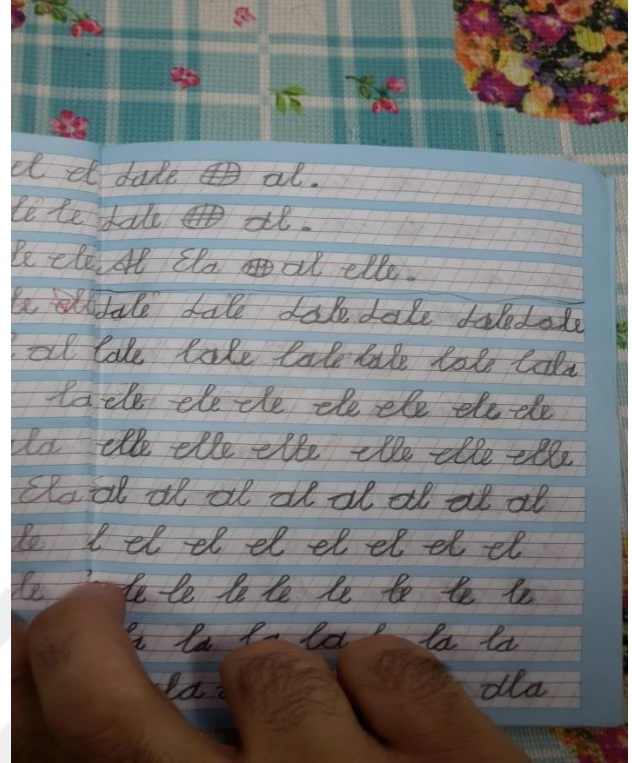 el el dale al.
le le dale al.
le ele Al Ela al elle.
le dale dale dale dale dale dale
al lale lale lale lale lale lala
la ele ele ele ele ele ele ele
la elle elle elle elle elle elle
Ela al al al al al al al al
le l el el el el el el el
le le le le le le le le le
la la la la la la
la dla